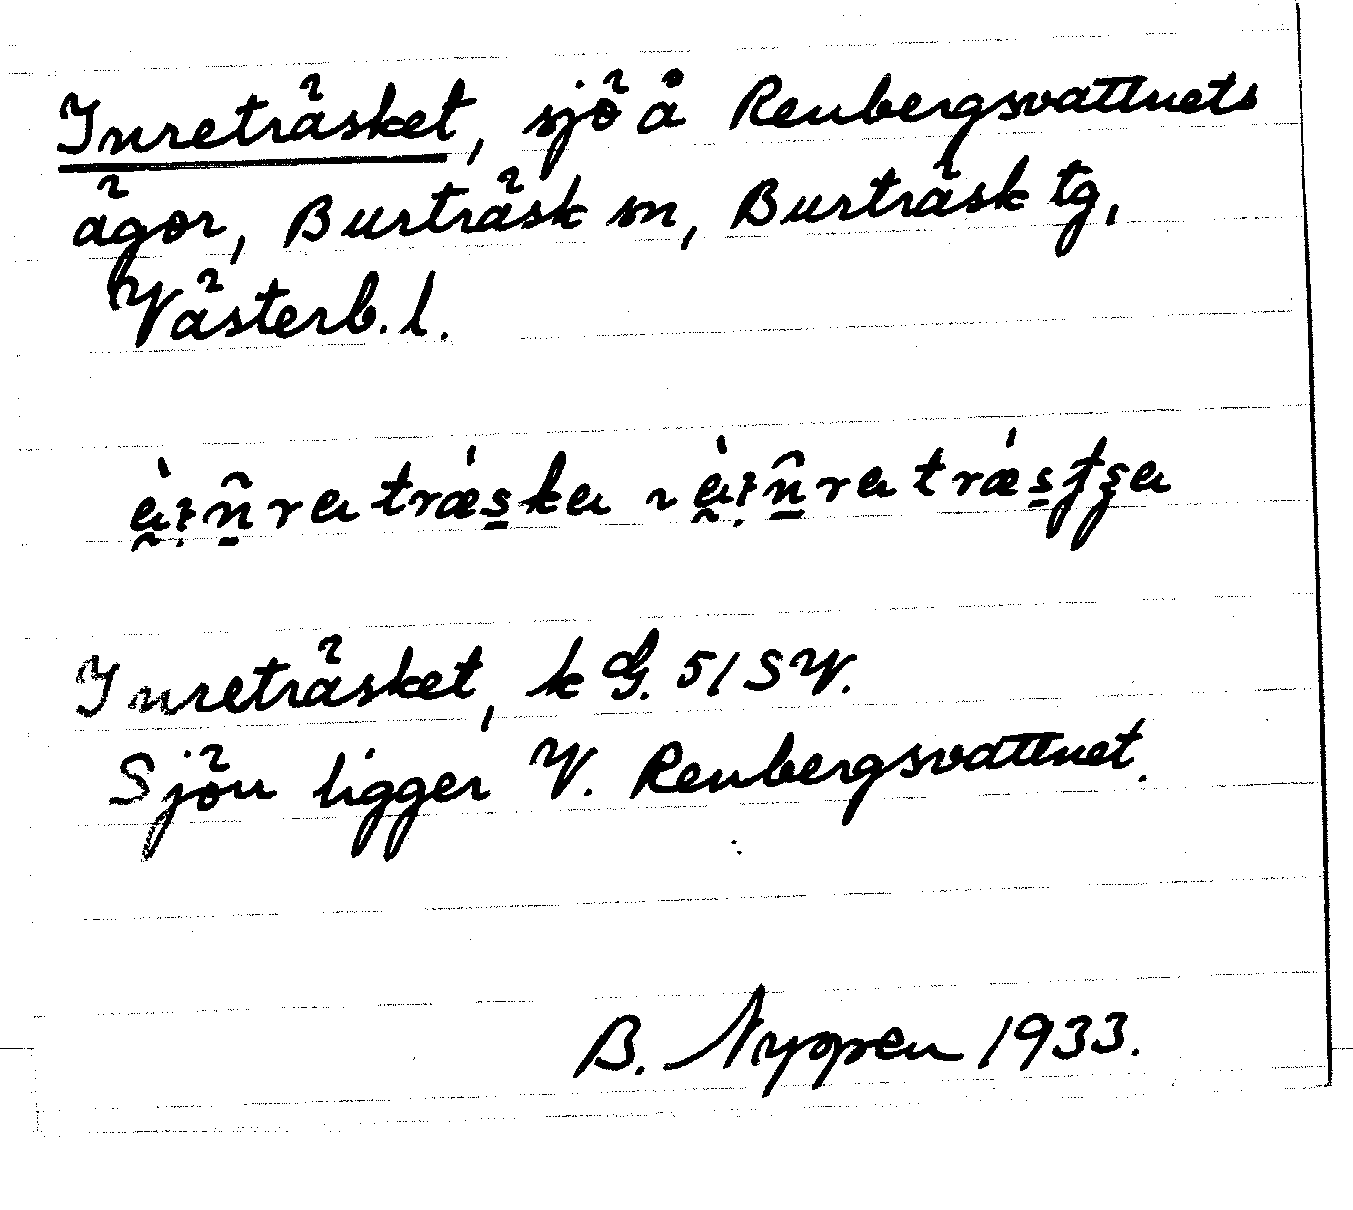 Inreträsket, sjö å Renbergsvattnets
ägor, Burträsk sn, Burträsk tg,
Västerb. l.
Inreträsket, k G. 51 SV.
Sjön ligger V. Renbergsvattnet.
B. Nyppen 1933.